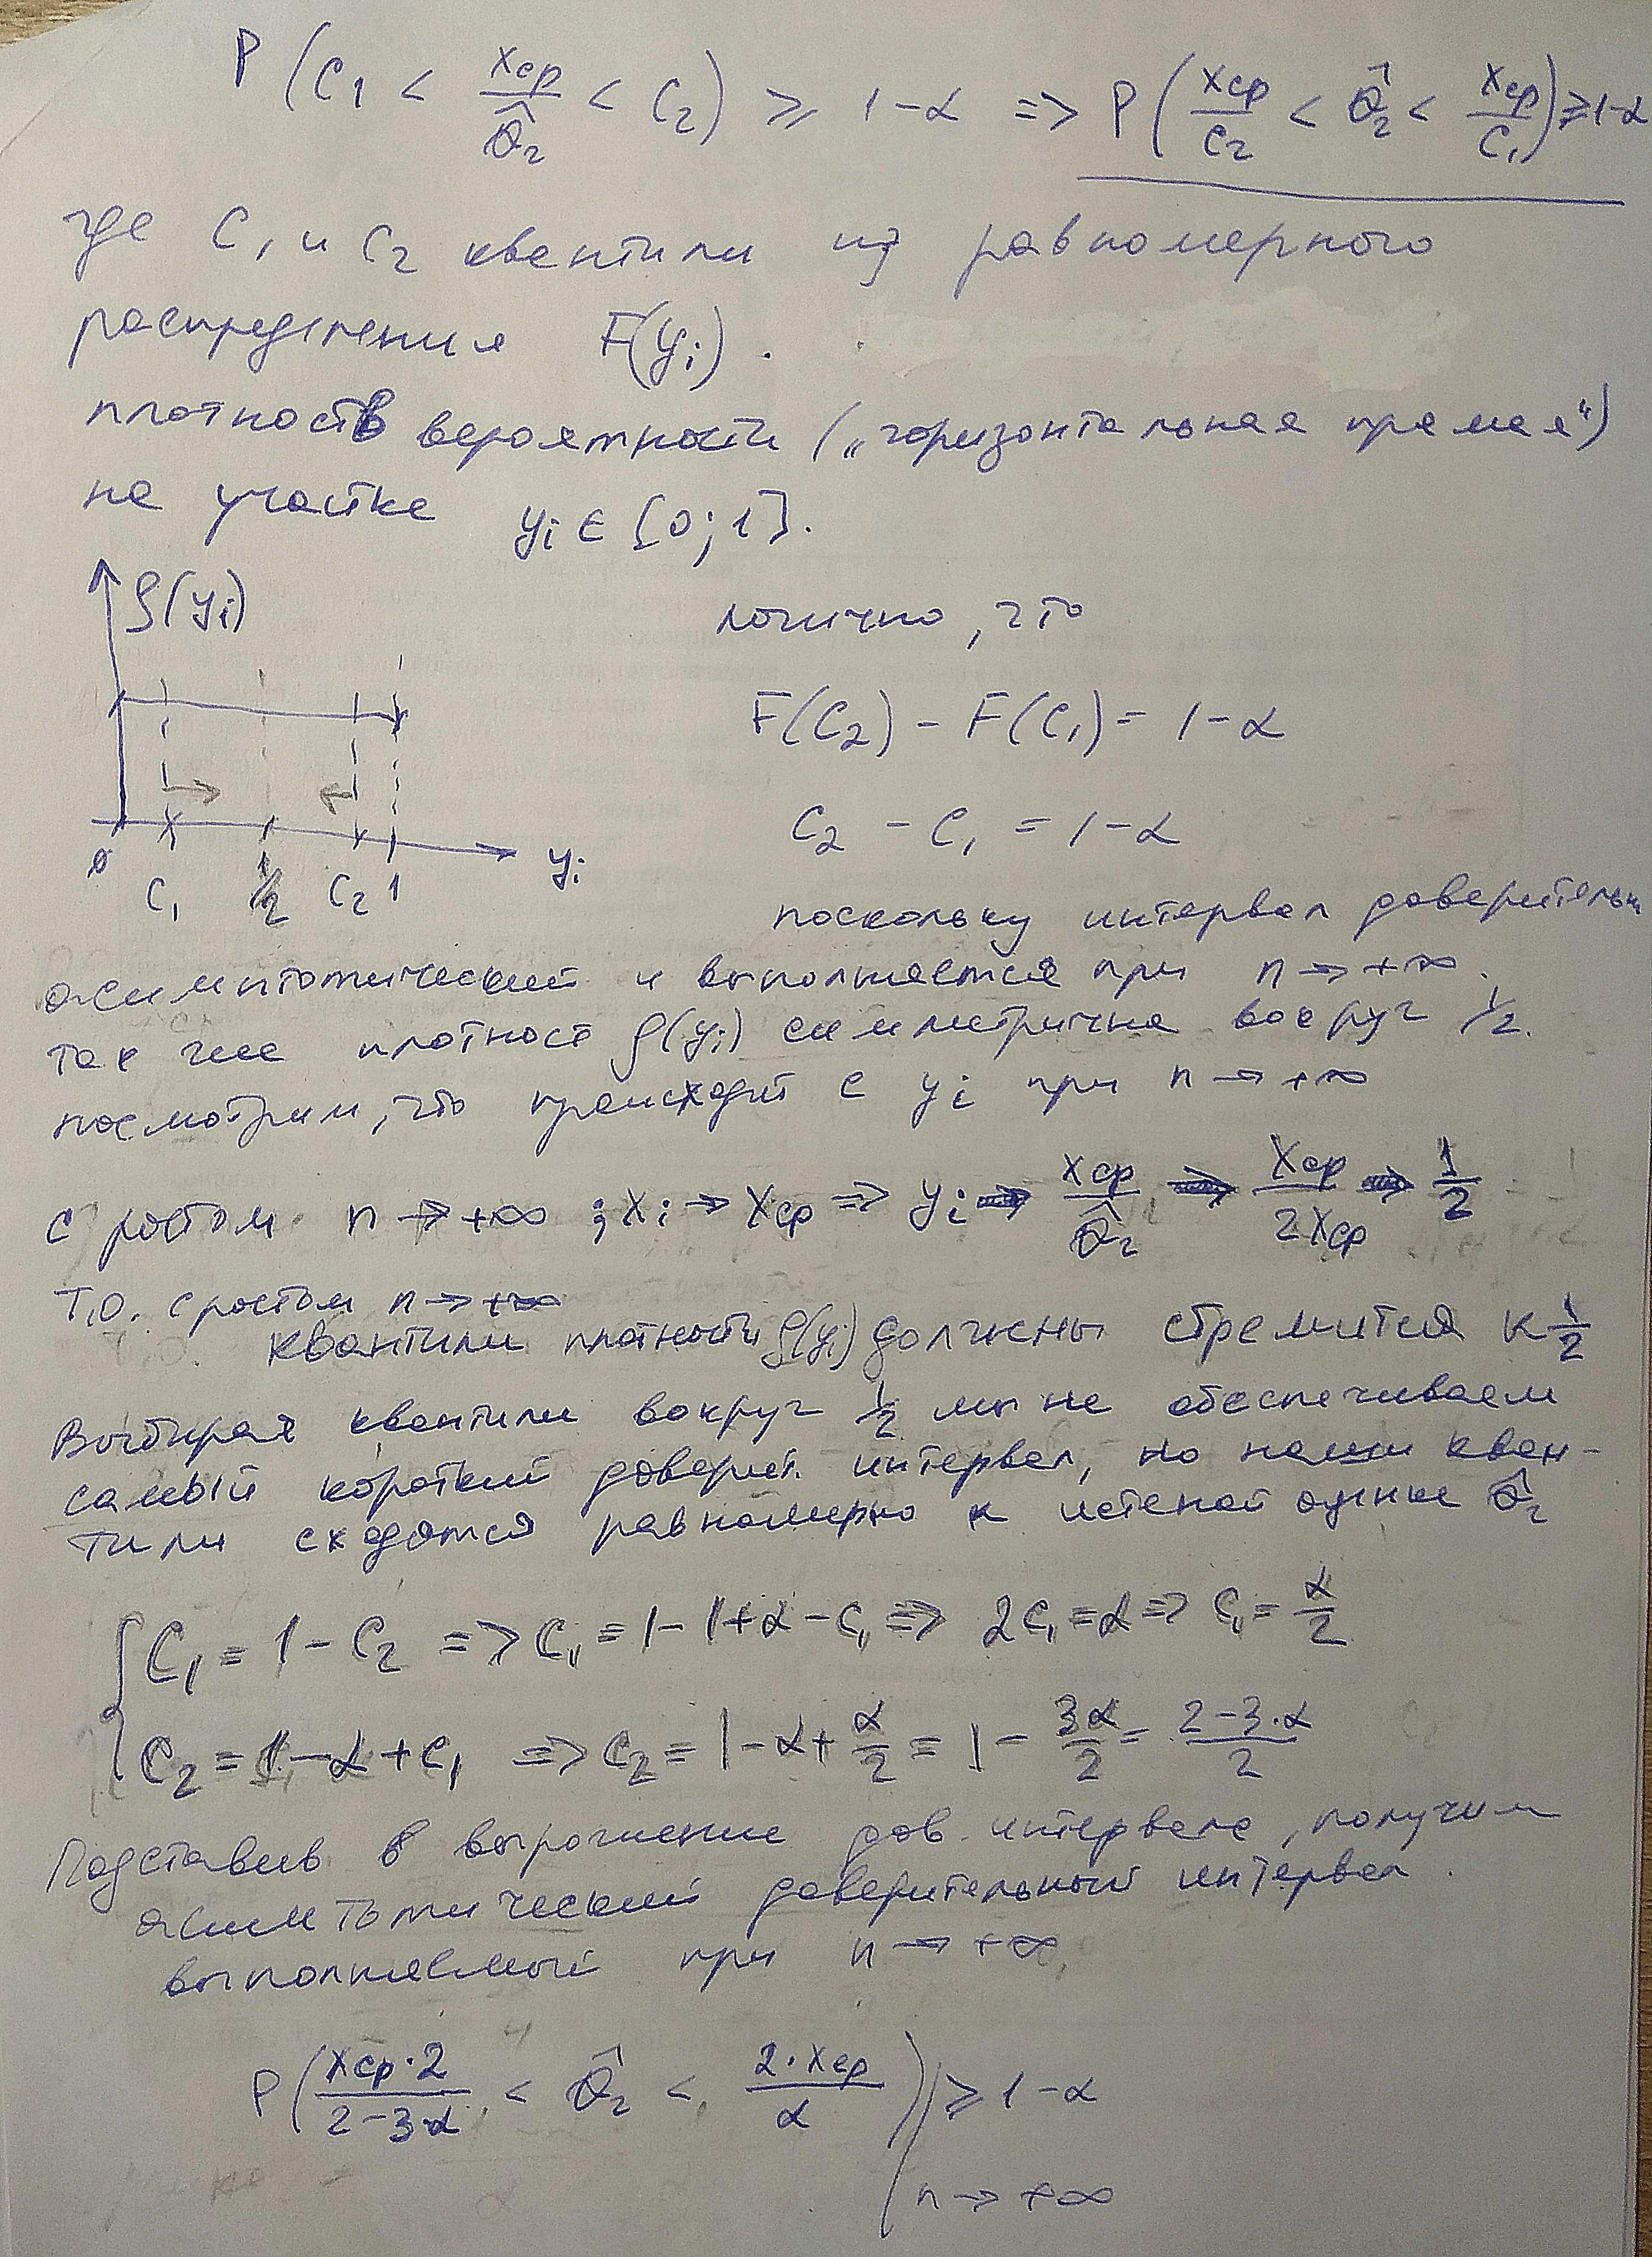 P(C₁ < xср/θ̂₂ < C₂) ≥ 1-α => P(xср/C₂ < θ̂₂ < xср/C₁) ≥ 1-α
где C₁ и C₂ квантили из равномерного
распределения F(yᵢ).
плотность вероятности („горизонтальная прямая“)
на участке yᵢ ∈ [0; 1].
ρ(yᵢ)
логично, что
F(C₂) - F(C₁) = 1-α
C₂ - C₁ = 1-α
0 C₁ 1/2 C₂ 1 yᵢ
поскольку интервал доверительн
асимптотический и выполняется при n → +∞.
так же плотност ρ(yᵢ) симметрична вокруг 1/2.
посмотрим, что происходит с yᵢ при n → +∞
с ростом n → +∞ ; xᵢ → xср => yᵢ => xср/θ̂₂ => xср/2xср => 1/2
Т.О. с ростом n → +∞
квантили плотности ρ(yᵢ) должны стремится к 1/2
Выбирая квантили вокруг 1/2 мы не обеспечиваем
самый короткий доверит. интервал, но наши кван-
тили сходятся равномерно к истеной оценке θ̂₂
C₁ = 1 - C₂ => C₁ = 1 - 1 + α - C₁ => 2C₁ = α => C₁ = α/2
C₂ = 1 - α + C₁ => C₂ = 1 - α + α/2 = 1 - 3α/2 = 2-3·α/2
Подставив в выражение дов. интервала, получим
асимтотический доверительный интервал.
выполняемый при n → +∞,
P(xср·2/2-3·α < θ̂₂ < 2·xср/α) ≥ 1-α
n → +∞